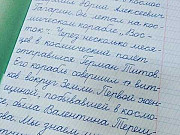 Юрий Алексеевич
Гагарин. Он летал на кос-
мическом корабле „Вос-
ток". Через несколько меся-
в космический полёт
отправился Герман Титов.
Его корабль совершил вит-
ков вокруг Земли. Первой жен-
щиной, побывавшей в космо-
се, была Валентина Тереш-
Мы знаем